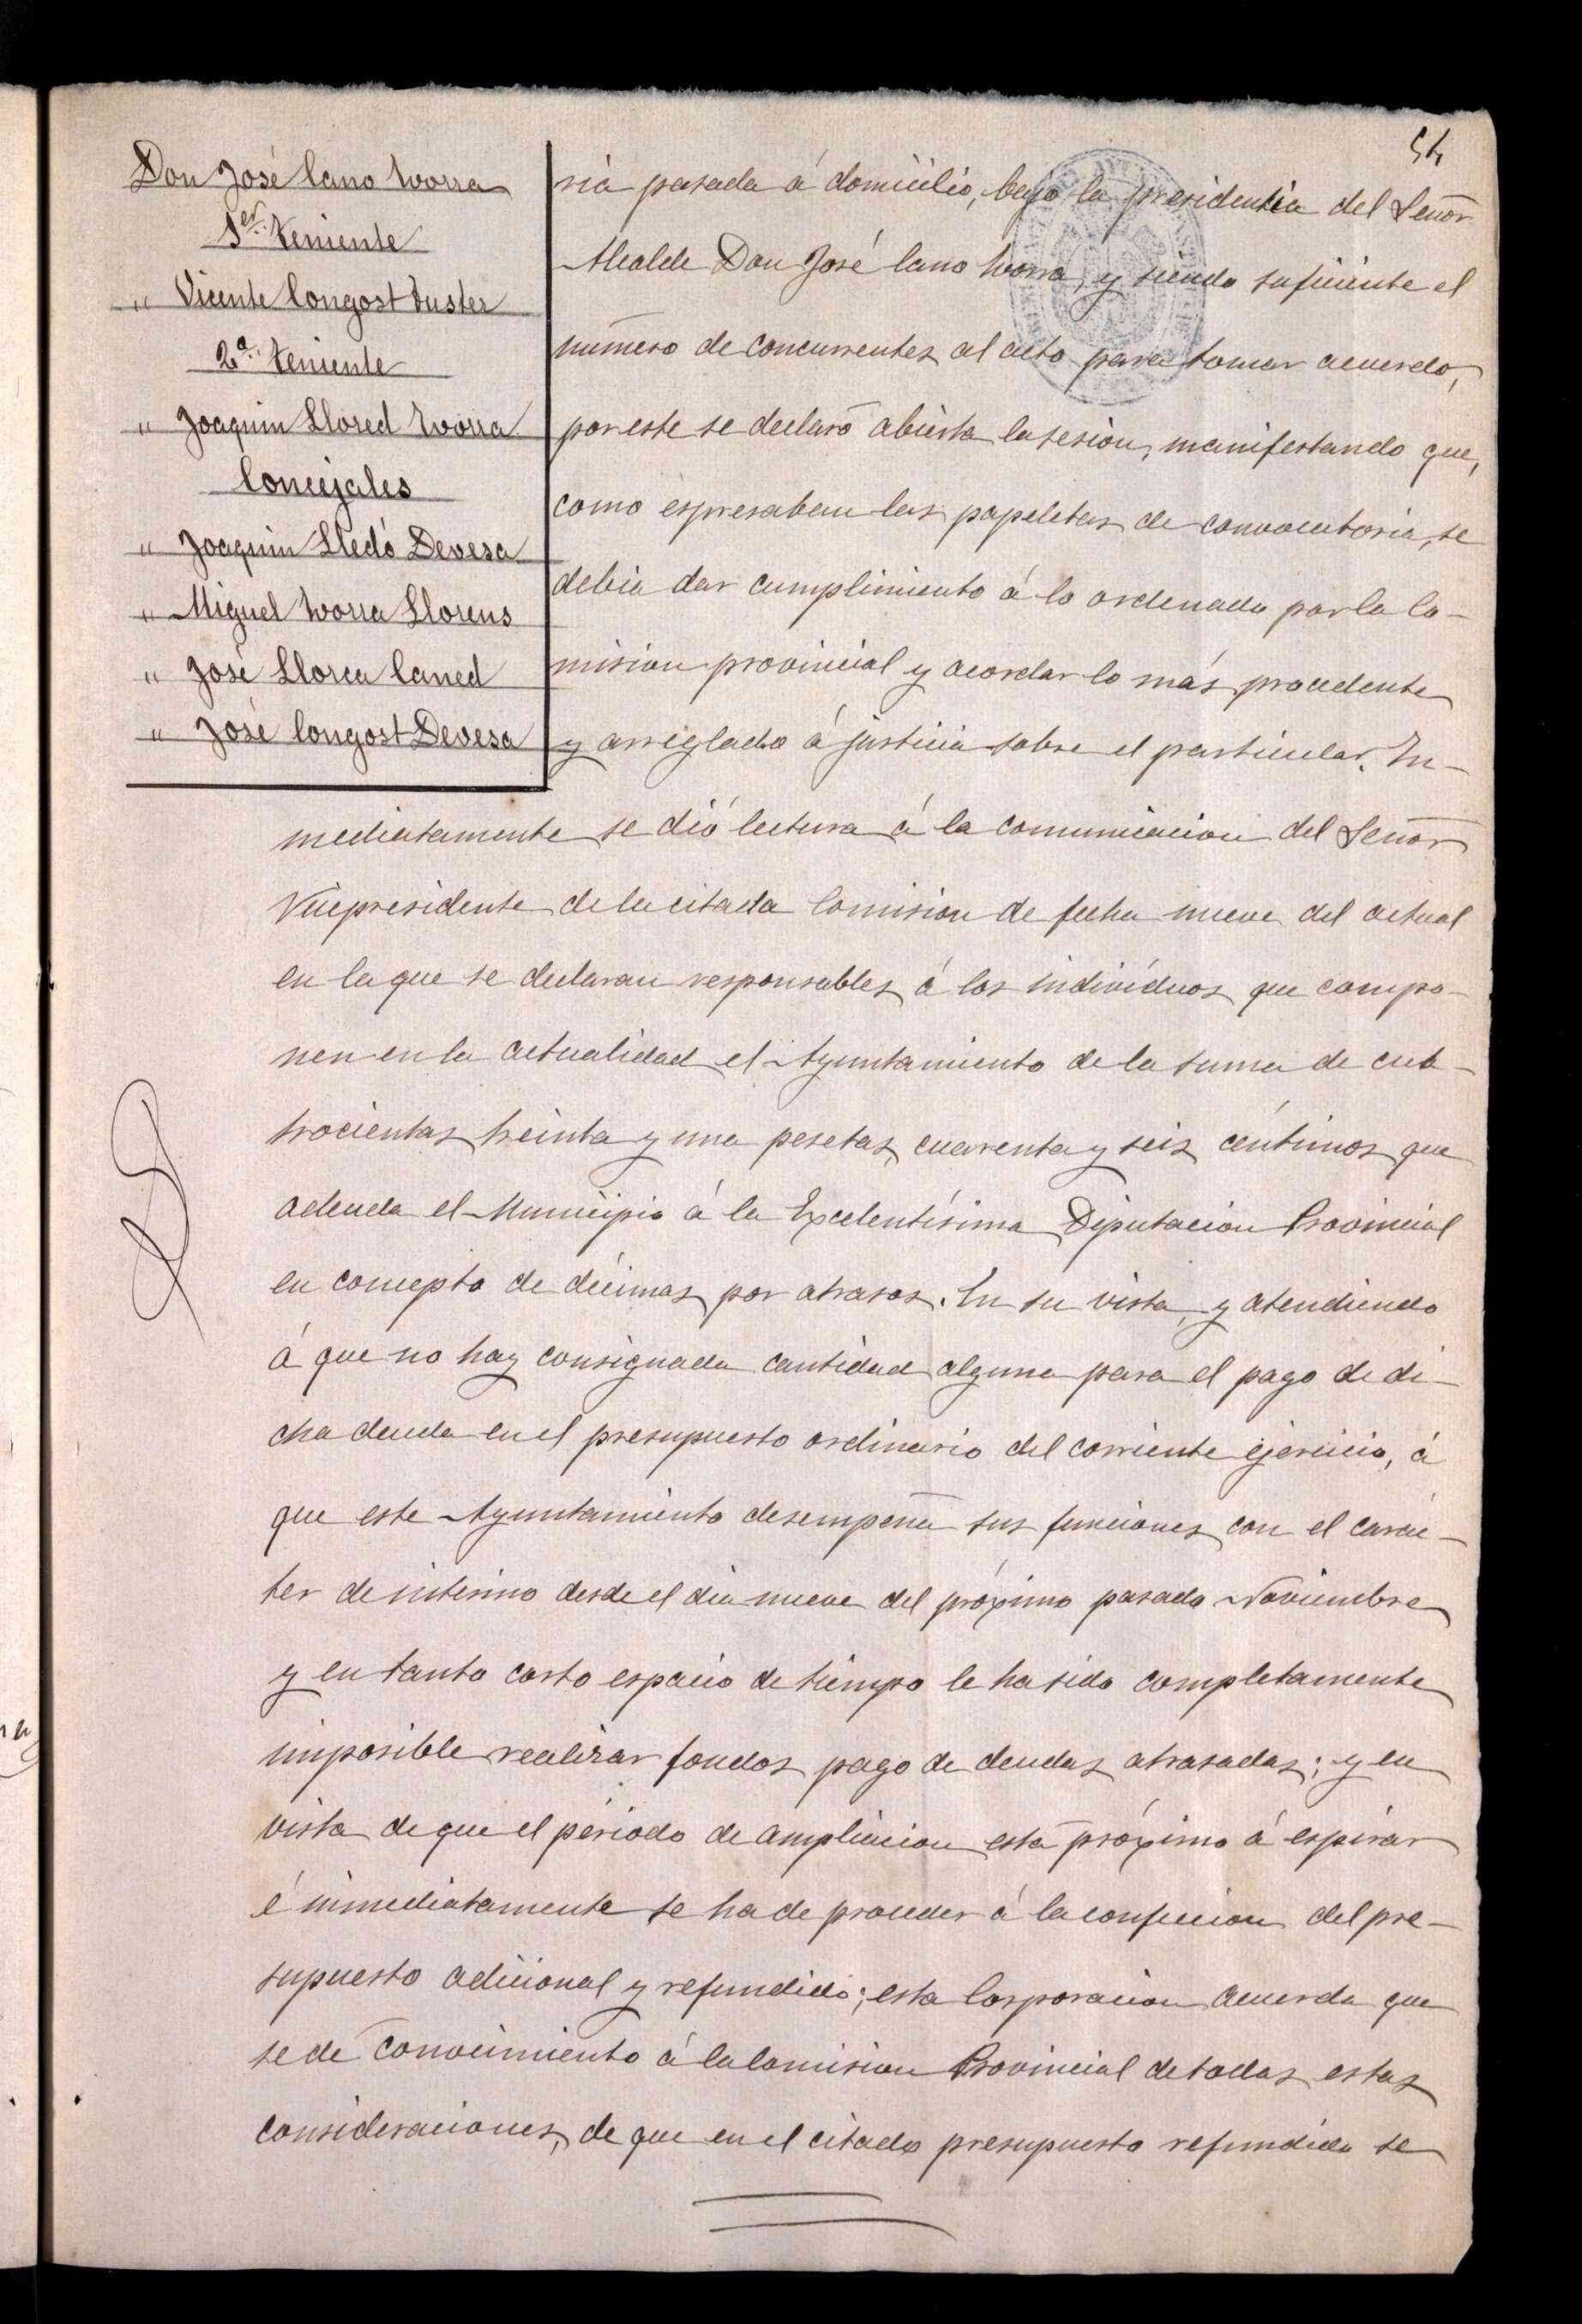 54
Don José Cano Ivorra
1er. Teniente
" Vicente Congost Fuster
2º. Teniente
" Joaquin Llored Ivorra
Concejales
" Joaquin Lledó Devesa
" Miguel Ivorra Llorens
" José Llorca Caned
" José Congost Devesa
ria pasada á domicilio, bajo la presidencia del Señor
Alcalde Don José Cano Ivorra, y siendo suficiente el
número de concurrentes al acto para tomar acuerdo,
por este se declaró abierta la sesion, manifestando que,
como espresaban las papeletas de convocatoria, se
debia dar cumplimiento á lo ordenado por la Co-
mision provincial y acordar lo más procedente
y arreglado á justicia sobre el particular. In-
mediatamente se dió lectura á la comunicacion del Señor
Vicepresidente de la citada Comision de fecha nueve del actual
en la que se declaran responsables á los indivíduos que compo-
nen en la actualidad el Ayuntamiento de la suma de cua-
trocientas treinta y una pesetas, cuarenta y seis céntimos que
adeuda el Municipio á la Excelentísima Diputacion Provincial
en concepto de décimas por atrasos. En su vista, y atendiendo
á que no hay consignada cantidad alguna para el pago de di-
cha deuda en el presupuesto ordinario del corriente ejercicio, á
que este Ayuntamiento desempeña sus funciones con el carác-
ter de interino desde el dia nueve del próximo pasado Noviembre
y en tanto corto espacio de tiempo le ha sido completamente
imposible realizar fondos pago de deudas atrasadas; y en
vista de que el período de ampliacion está próximo á espirar
é inmediatamente se ha de proceder á la confeccion del pre-
supuesto adicional y refundido; esta Corporacion acuerda que
se dé conocimiento á la Comision Provincial de todas estas
consideraciones, de que en el citado presupuesto refundido se